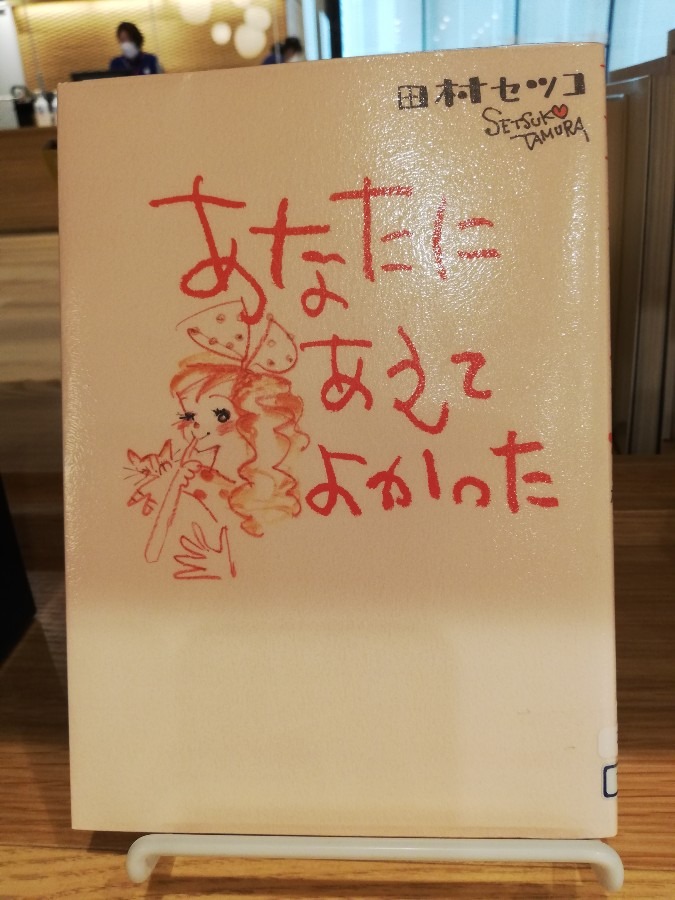 田村セツコ
SETSUKO
TAMURA
あなたに
あえて
よかった